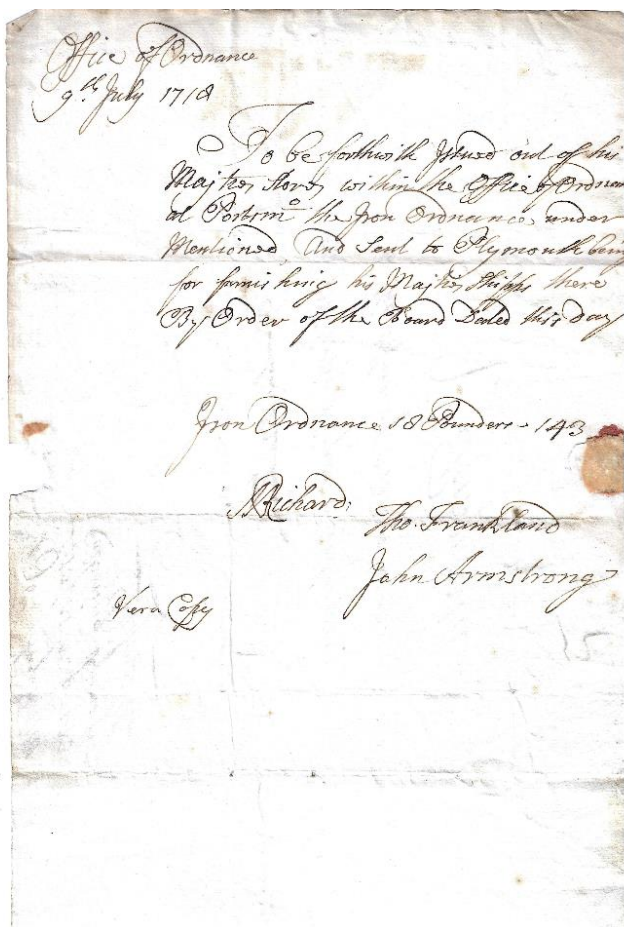 Office of Ordnance
9th July 1718
To be forthwith Issued out of his
Majties Stores within the Office of Ordnan
at Portsmo the Iron Ordnance under
Mentioned And Sent to Plymouth being
for furnishing his Majties Shipps there
By Order of the Board Dated this day
Iron Ordnance 18 Pounders - 143
Richards
Tho. Frankland
John Armstrong
Vera Copy